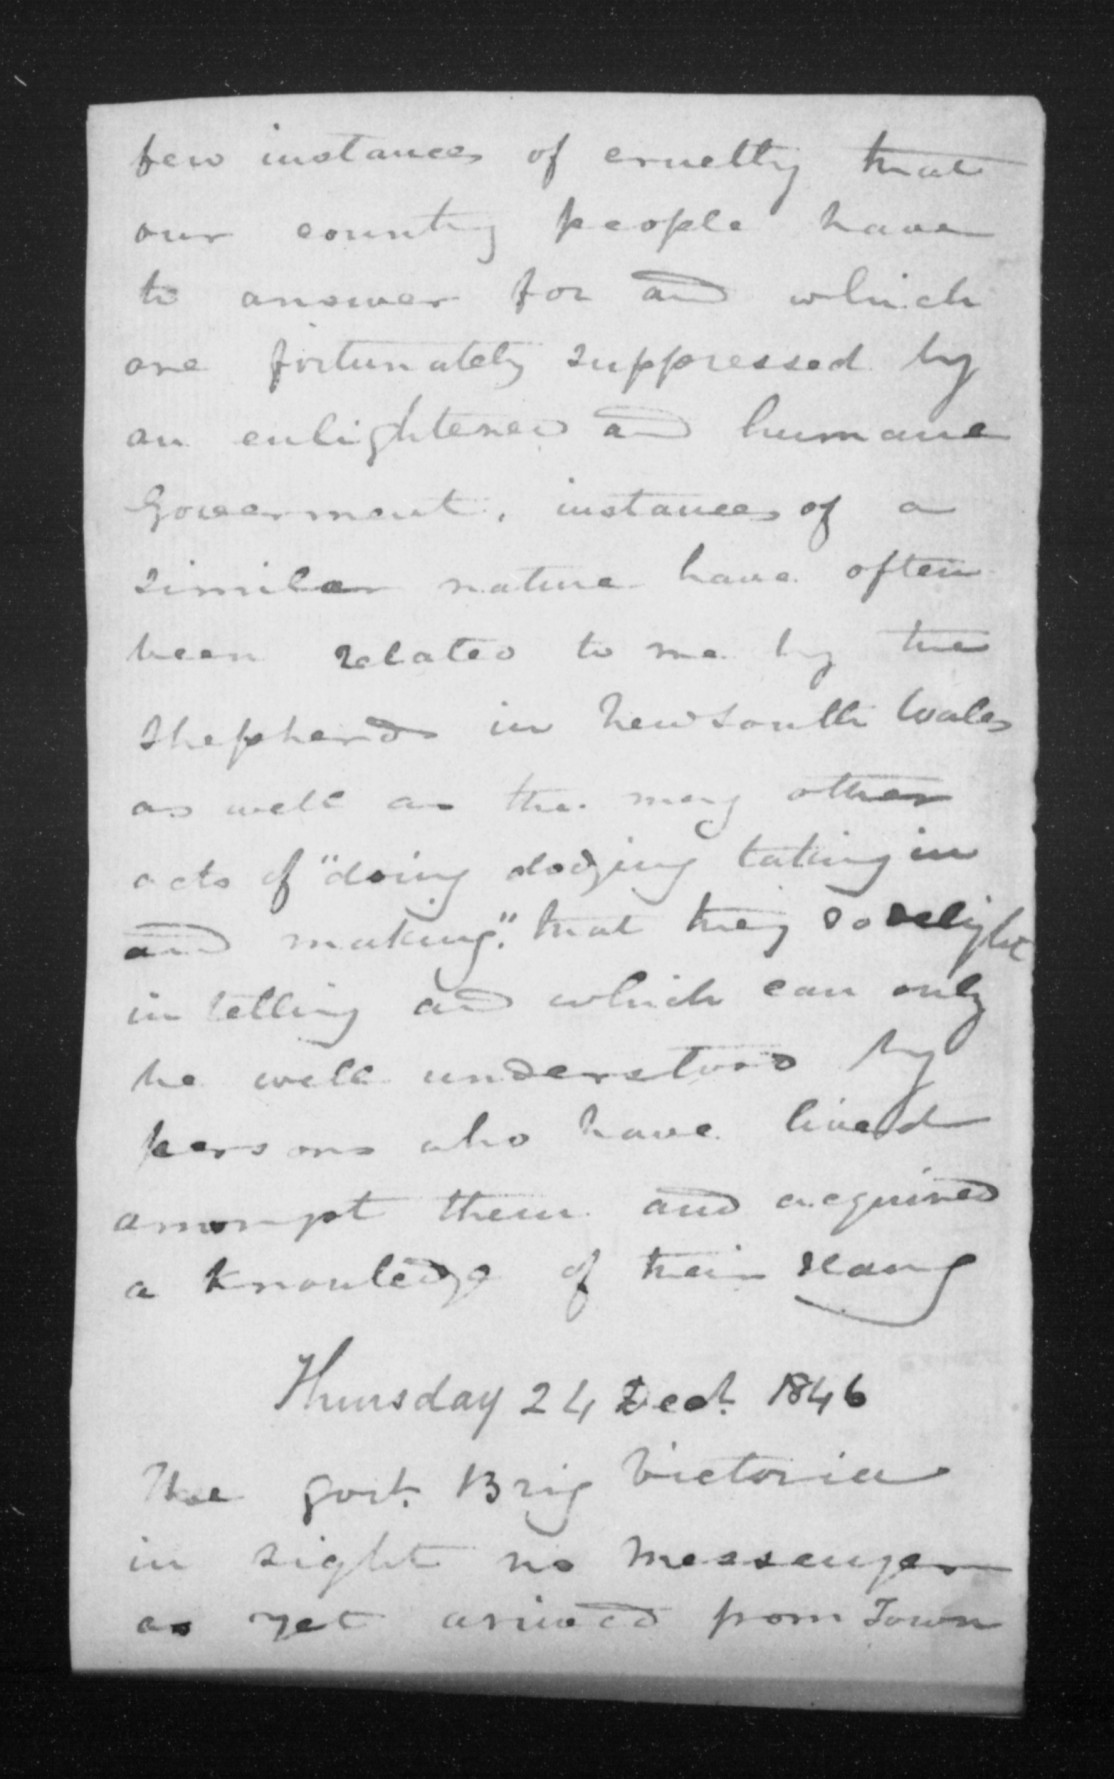 few instances of cruelty that
our country people have
to answer for and which
are fortunately suppressed by
an enlightened and humane
Goverment, instances of a
similar nature have often
been related to me by the
Shepherds in New South Wales
as well as the many other
acts of "doing dodging taking in
and making". that they so delight
in telling and which can only
be well understood by
persons who have lived
amongst them and acquired
a knowledge of their slang
Thursday 24 Decr. 1846
The govt. Brig Victoria
in sight no messenger
as yet arived from Town